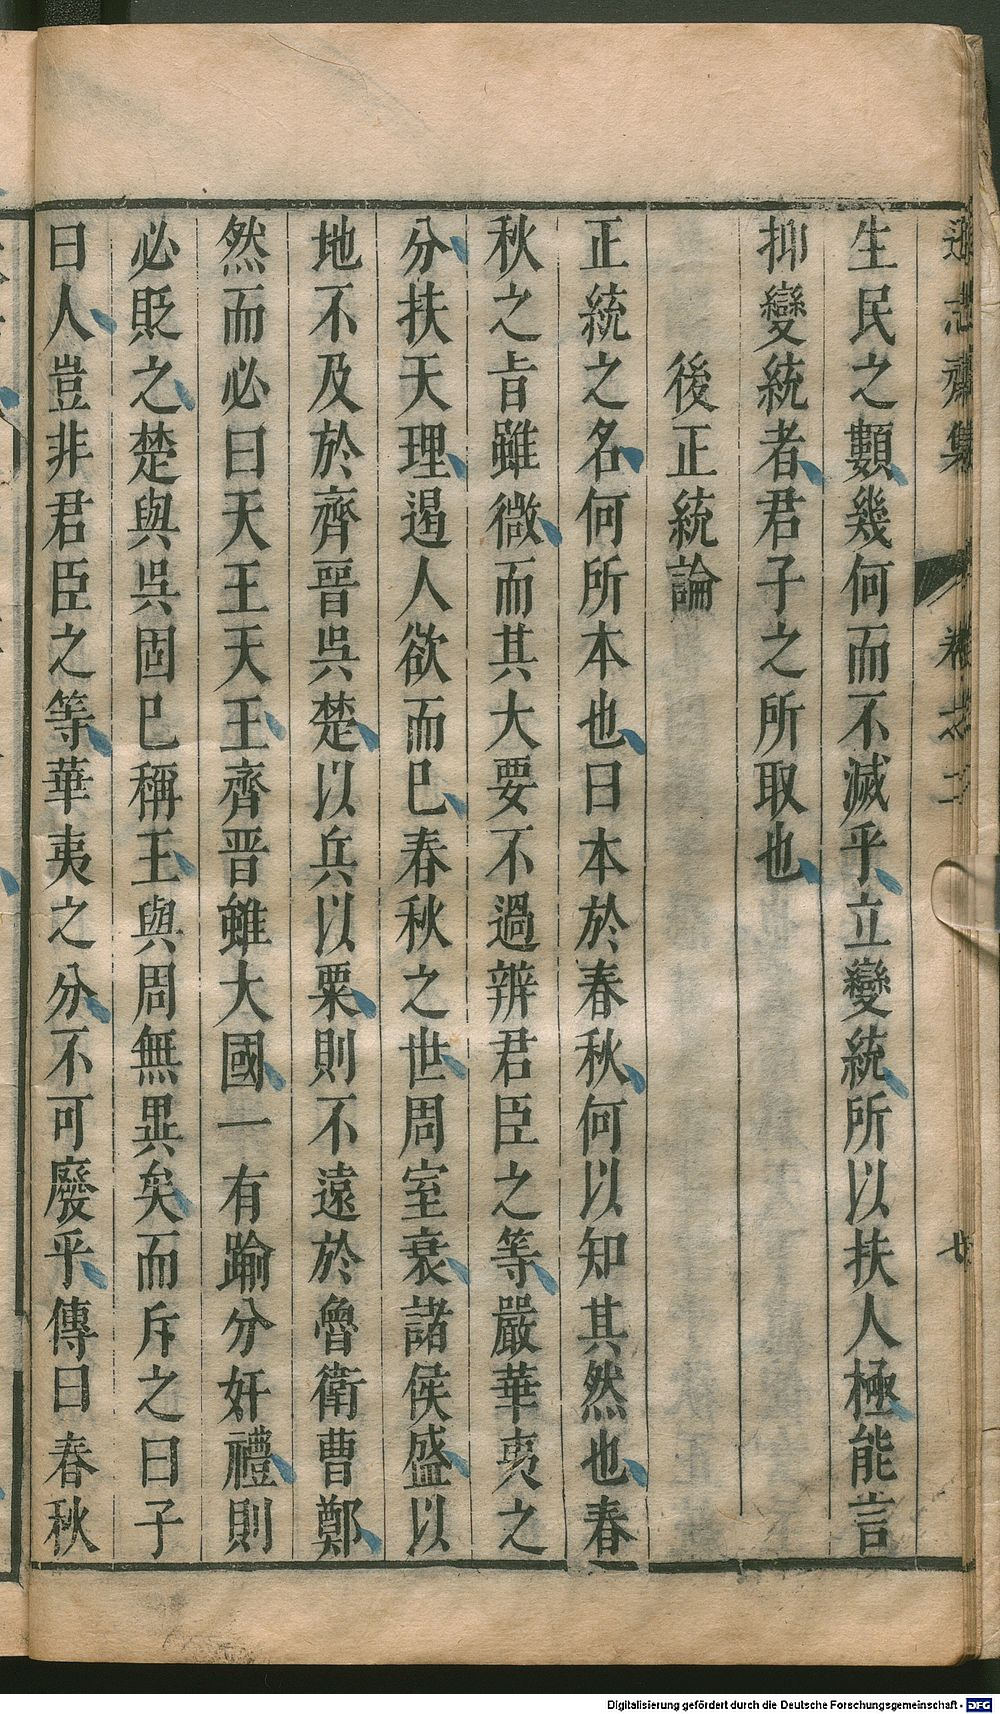 遜志齋集 卷之二 廿
生民之類幾何而不滅乎立變統所以扶人極能言
抑變統者君子之所取也
後正統論
正統之名何所本也曰本於春秋何以知其然也春
秋之旨雖微而其大要不過辨君臣之等嚴華夷之
分扶天理遏人欲而已春秋之世周室衰諸侯盛以
地不及於齊晉吳楚以兵以粟則不遠於魯衛曹鄭
然而必曰天王天王齊晉雖大國一有踰分奸禮則
必貶之楚與吳固已稱王與周無異矣而斥之曰子
曰人豈非君臣之等華夷之分不可廢乎傳曰春秋
Digitalisierung gefördert durch die Deutsche Forschungsgemeinschaft - DFG